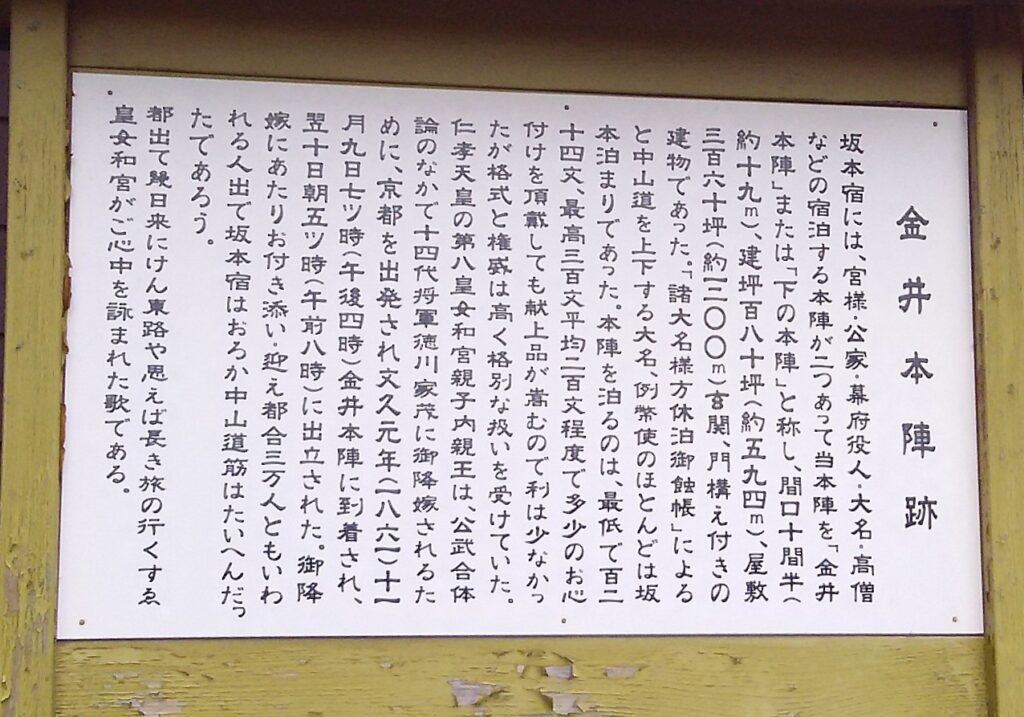 金井本陣跡
坂本宿には、宮様・公家・幕府役人・大名・高僧
などの宿泊する本陣が二つあって当本陣を「金井
本陣」または「下の本陣」と称し、間口十間半(
約十九m)、建坪百八十坪(約五九四m)、屋敷
三百六十坪(約一二〇〇m)玄関、門構え付きの
建物であった。「諸大名様方休泊御蝕帳」による
と中山道を上下する大名、例幣使のほとんどは坂
本泊まりであった。本陣を泊るのは、最低で百二
十四文、最高三百文平均二百文程度で多少のお心
付けを頂戴しても献上品が嵩むので利は少なかっ
たが格式と権威は高く格別な扱いを受けていた。
仁孝天皇の第八皇女和宮親子内親王は、公武合体
論のなかで十四代将軍徳川家茂に御降嫁されるた
めに、京都を出発され文久元年(一八六一)十一
月九日七ツ時(午後四時)金井本陣に到着され、
翌十日朝五ツ時(午前八時)に出立された。御降
嫁にあたりお付き添い・迎え都合三万人ともいわ
れる人出で坂本宿はおろか中山道筋はたいへんだっ
たであろう。
都出て幾日来にけん東路や思えば長き旅の行くすゑ
皇女和宮がご心中を詠まれた歌である。